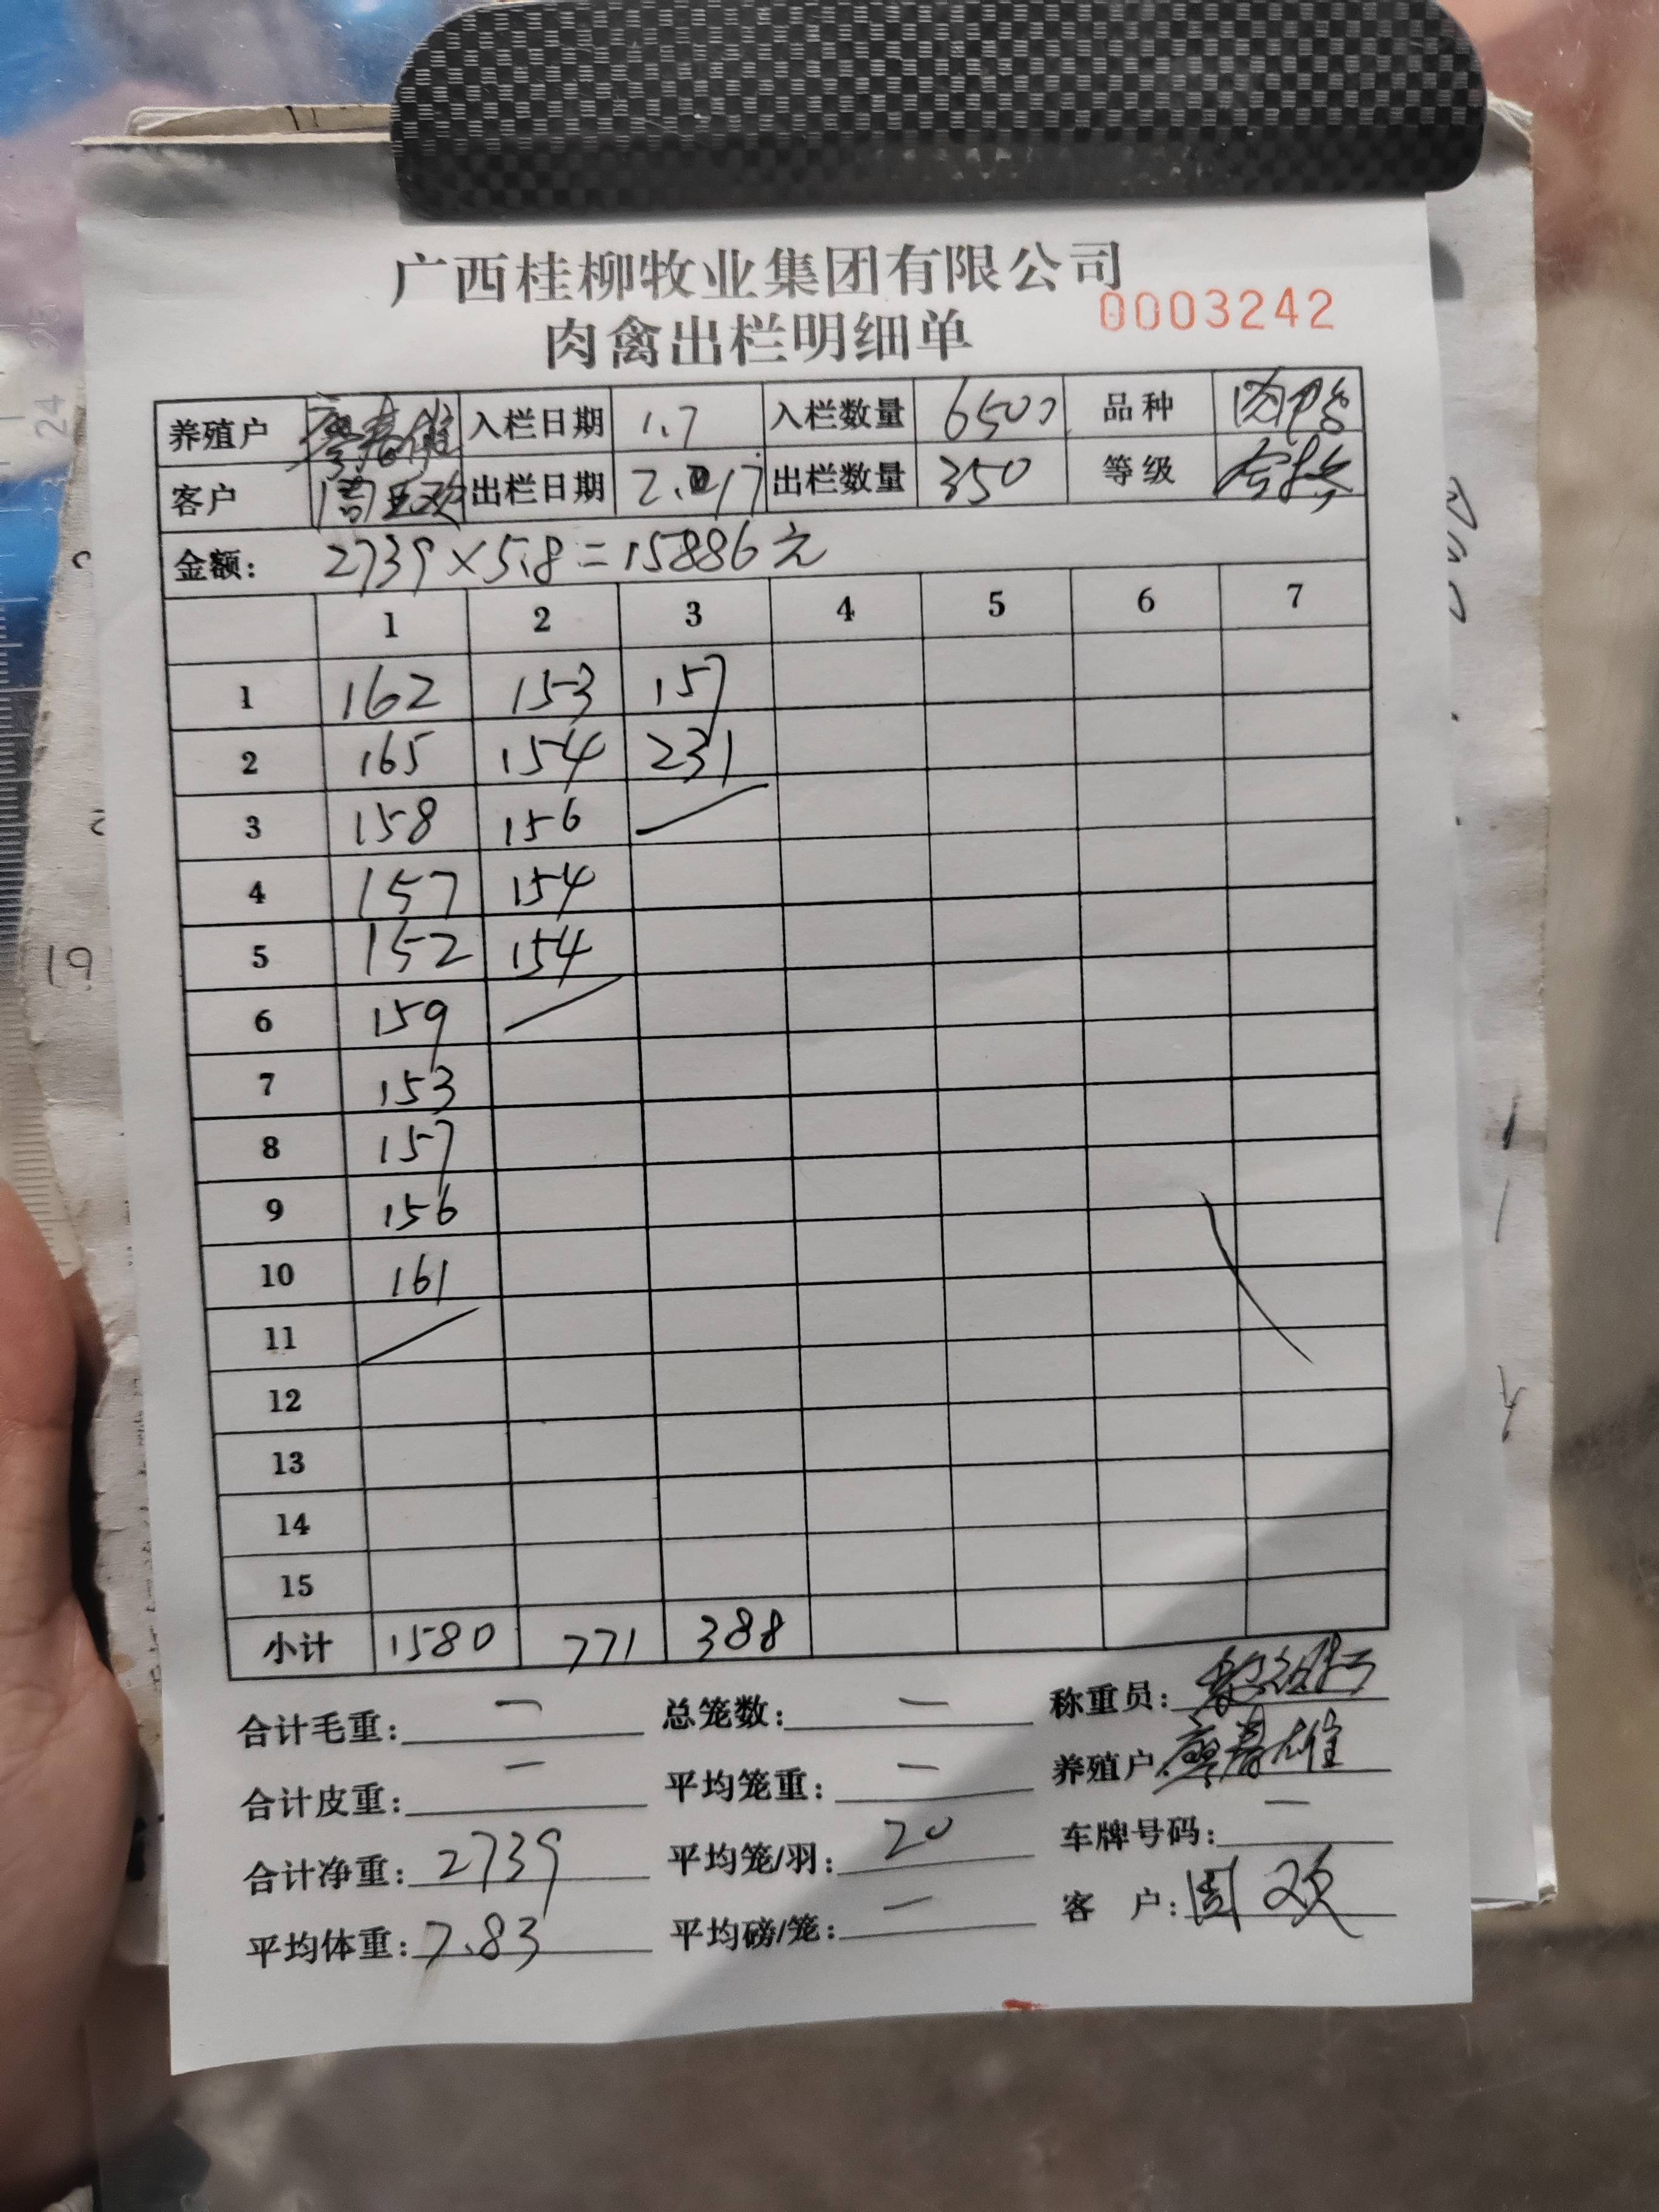 广西桂柳牧业集团有限公司
0003242
肉禽出栏明细单
养殖户 廖春雄 入栏日期 1.7 入栏数量 6500 品种 肉鸭
客户 周 欢 出栏日期 2.17 出栏数量 350 等级
金额: 2739×5.8=15886元
1 2 3 4 5 6 7
1 162 153 157
2 165 154 231
3 158 156
4 157 154
5 152 154
6 159
7 153
8 157
9 156
10 161
11
12
13
14
15
小计 1580 771 388
合计毛重: 一 总笼数: 一 称重员:
合计皮重: 一 平均笼重: 一 养殖户: 廖春雄
合计净重: 2739 平均笼/羽: 20 车牌号码: 一
平均体重: 7.83 平均磅/笼: 一 客 户: 周欢
24
19